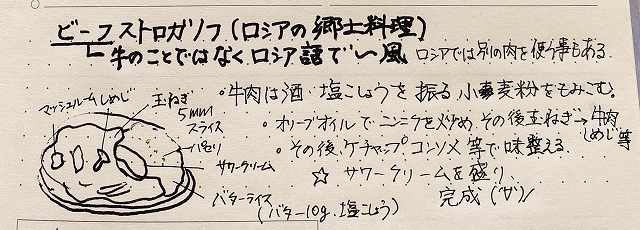 ビーフストロガノフ(ロシアの郷土料理)
牛のことではなくロシア語で〜風 ロシアでは別の肉を使う事もある
・牛肉は酒、塩こしょうを振る 小麦粉をもみこむ。
・オリーブオイルでニンニクを炒め、その後玉ねぎ→牛肉
しめじ等
・その後、ケチャップ、コンソメ等で味整える
☆ サワークリームを盛り、
完成
マッシュルーム しめじ
玉ねぎ
5mm
スライス
パセリ
サワークリーム
バターライス
(バター10g、塩こしょう)